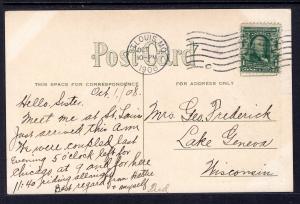 ST. LOUIS, MO.
OCT
1908
Post Card
THIS SPACE FOR CORRESPONDENCE
FOR ADDRESS ONLY
Oct. 1/08.
Hello Sister.
Meet me at St. Louis
Just arrived this Am
We were coupled last
evening 5 o'clock left for
Chicago at 9 and for here
11:40 friday
Best regard from Hattie
+ myself
Mrs. Geo. Frederick
Lake Geneva
Wisconsin